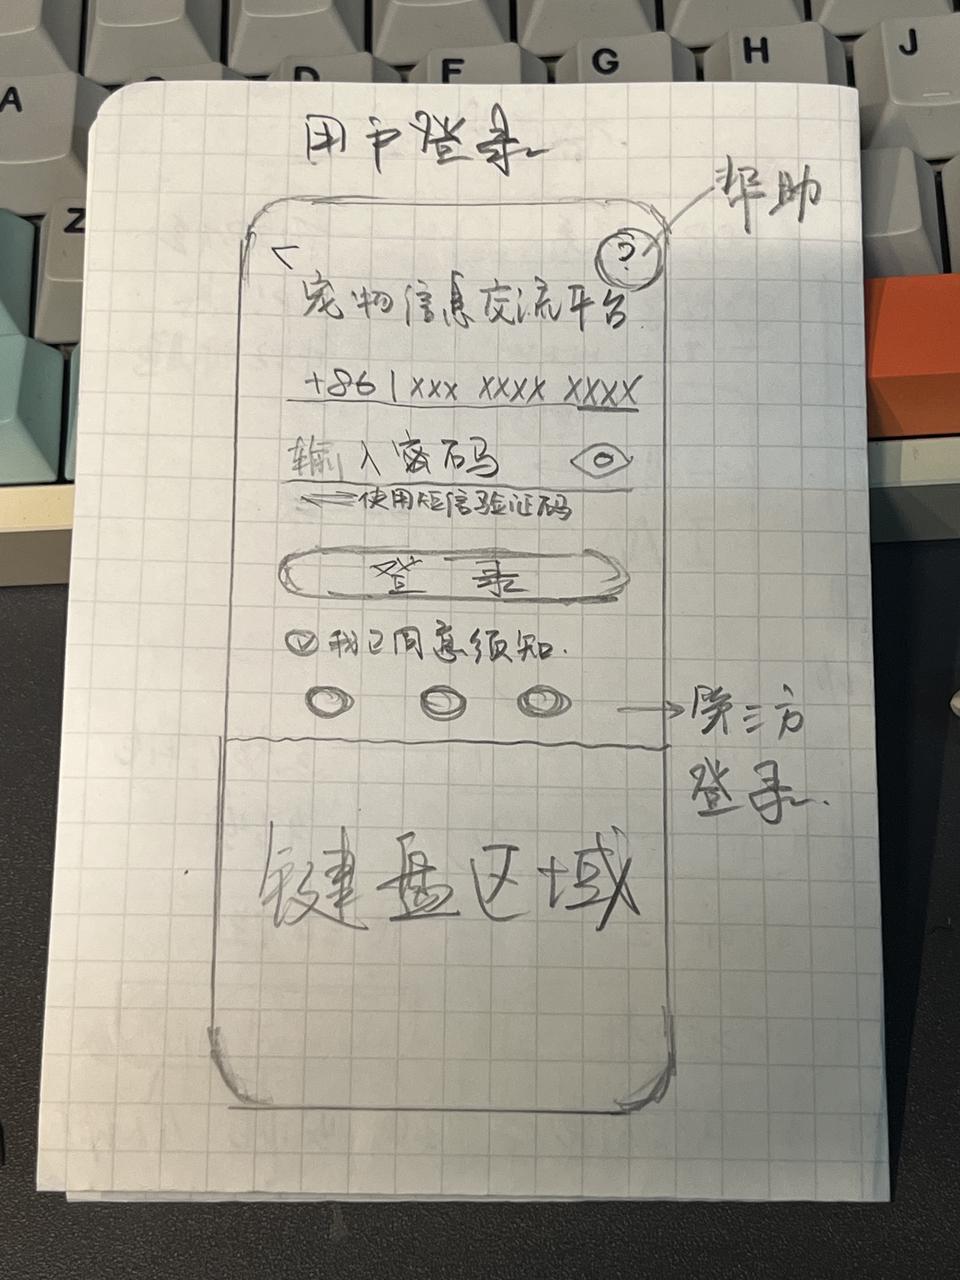 A
D
F
G
H
J
Z
用户登录
帮助
<
?
宠物信息交流平台
+86 1xxx xxxx xxxx
输入密码
使用短信验证码
登录
我已同意须知.
第三方
登录.
键盘区域